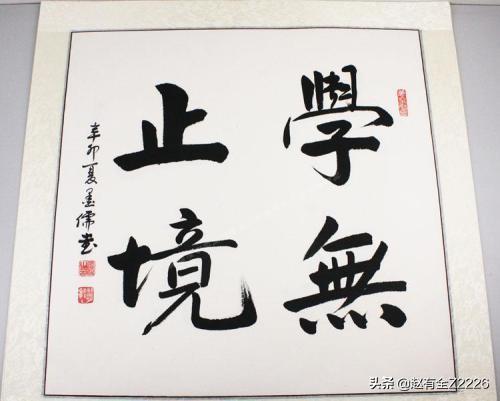 學無
止境
辛卯夏墨儒书
头条 @赵有全Z2226